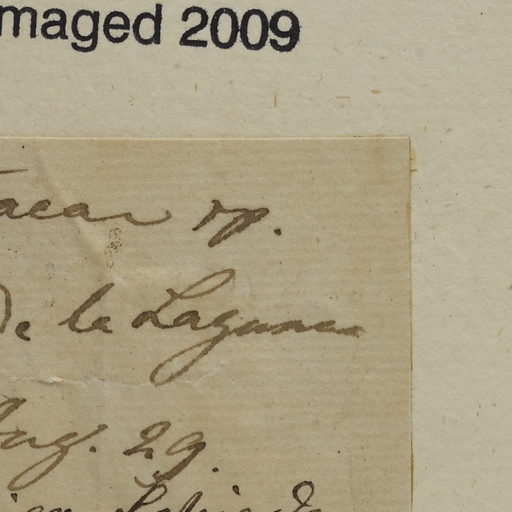 maged 2009
acar sp.
De la Laguna
Aug. 29.